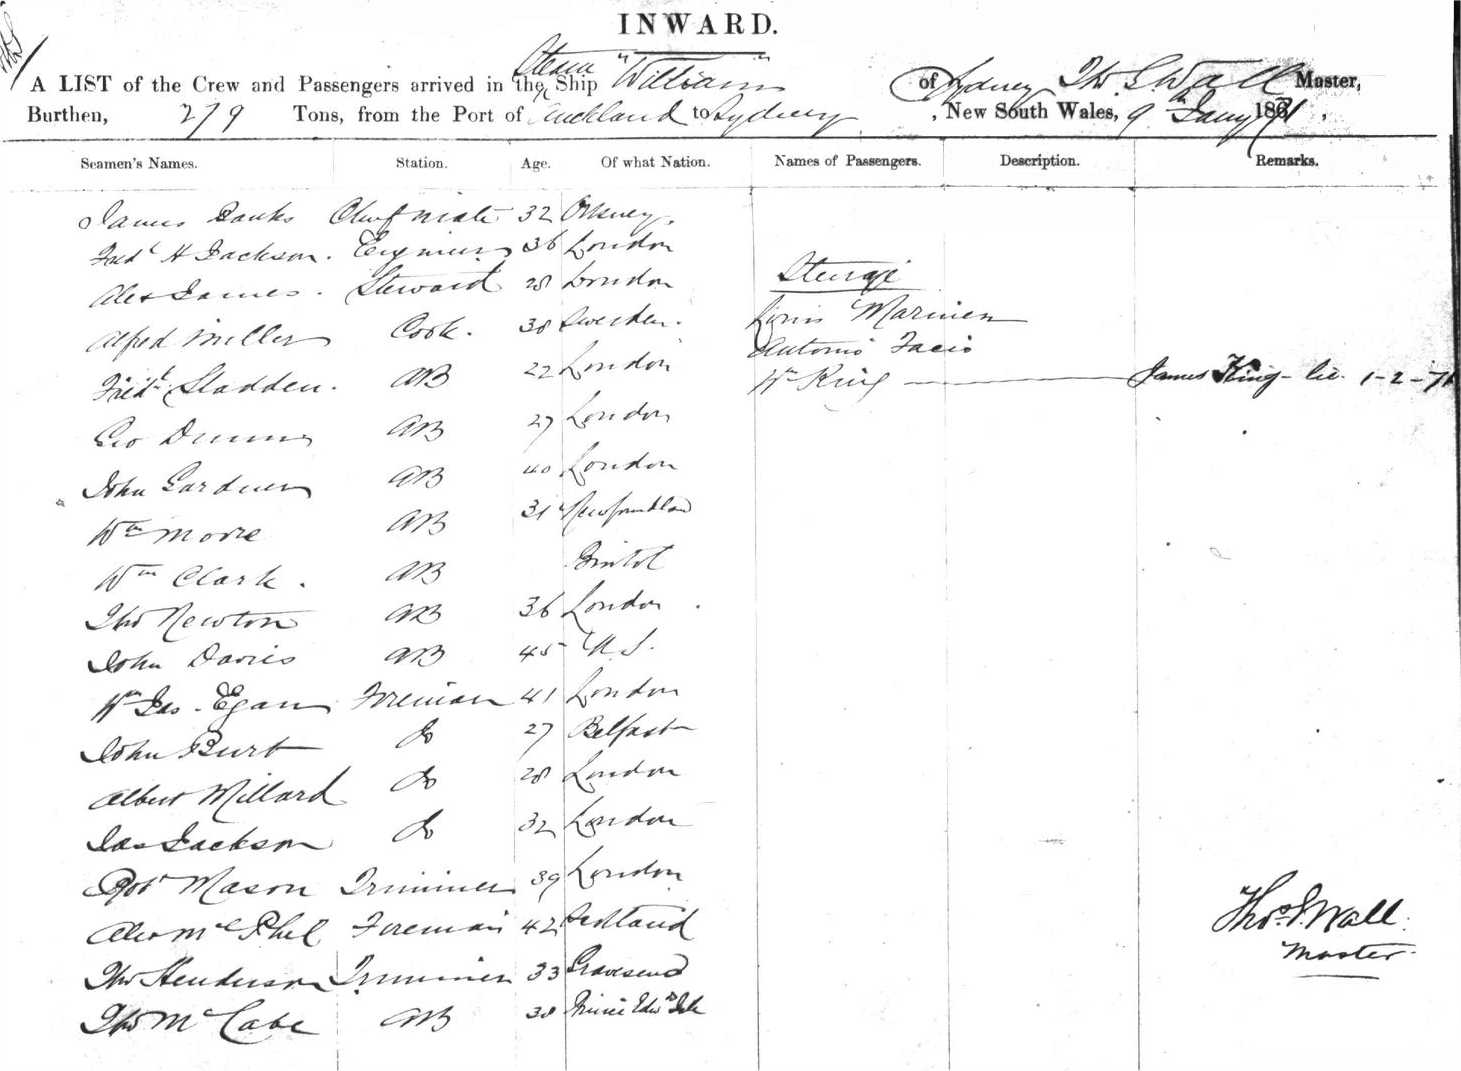 INWARD.
A LIST of the Crew and Passengers arrived in the Steam Ship "William" of Sydney Tho. S Wall Master,
Burthen, 279 Tons, from the Port of Auckland to Sydney, New South Wales, 9th Jany 1871.
Seamen's Names. Station. Age. Of what Nation. Names of Passengers. Description. Remarks.
James Banks Chief Mate 32 Orkney.
Fredk H Jackson. Engineer 36 London
Alex James. Steward 28 London
Steerage
Alfred Miller Cook. 38 Sweden. Marinen
Antonio
Fredk Sladden. AB 22 London Wm King James King - lic. 1-2-71
Geo Dunn AB 27 London
John Gardner AB 40 London
Wm Moore AB 31 Newfoundlan
Wm Clark. AB Bristol
Tho Newton AB 36 London.
John Davies AB 45
Wm Jas. Egan Fireman 41 London
John Burt do 27 Belfast
Albert Millard do 28 London
Jas Jackson do 32 London
Robt Mason Trimmer 39 London
Alex McPhel Fireman 42 Scotland
Thos S. Wall.
Master.
Tho Henderson Trimmer 33 Gravesend
Tho McCabe AB 38 Prince Edwd Isle